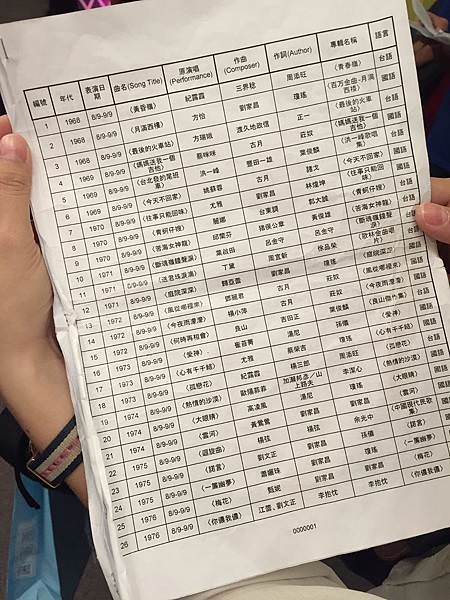 編號 年代 表演日期 曲名(Song Title) 原演唱(Performance) 作曲(Composer) 作詞(Author) 專輯名稱 語言
1 1968 8/9-9/9 〈黃昏嶺〉 紀露霞 三界稔 周添旺 〈青春嶺〉 台語
2 1968 8/9-9/9 〈月滿西樓〉 方怡 劉家昌 瓊瑤 〈百万金曲-月滿西樓〉 國語
3 1968 8/9-9/9 〈最後的火車站〉 方瑞娥 渡久地政信 正一 〈最後的火車站〉 台語
4 1969 8/9-9/9 〈媽媽送我一個吉他〉 蔡咪咪 古月 莊奴 〈媽媽送我一個吉他〉 國語
5 1969 8/9-9/9 〈台北發的尾班車〉 洪一峰 豐田一雄 葉俊麟 〈洪一峰歌唱集〉 台語
6 1969 8/9-9/9 〈今天不回家〉 姚蘇蓉 古月 〈今天不回家〉 國語
7 1970 8/9-9/9 〈往事只能回味〉 尤雅 劉家昌 林煌坤 〈往事只能回味〉 國語
8 1970 8/9-9/9 〈青蚵仔嫂〉 麗娜 台東調 郭大誠 〈青蚵仔嫂〉 台語
9 1970 8/9-9/9 〈苦海女神龍〉 邱蘭芬 豬俁公章 黃俊雄 〈苦海女神龍〉 台語
10 1971 8/9-9/9 〈斷魂嶺鐘聲淚〉 葉啟田 呂金守 呂金守 〈斷魂嶺鐘聲淚〉 台語
11 1971 8/9-9/9 〈送君珠淚滴〉 丁黛 周宜新 徐品榮 〈歌林金曲唱片〉 台語
12 1971 8/9-9/9 〈庭院深深〉 歸亞蕾 劉家昌 瓊瑤 〈庭院深深〉 國語
13 1972 8/9-9/9 〈風從哪裡來〉 鄧麗君 古月 莊奴 〈風從哪裡來〉 國語
14 1972 8/9-9/9 〈今夜雨濛濛〉 楊小萍 古月 莊奴 〈今夜雨濛濛〉 國語
15 1972 8/9-9/9 〈何時再相會〉 良山 吉田正 葉俊麟 〈良山傑作集〉 台語
16 1973 8/9-9/9 〈愛神〉 崔苔菁 湯尼 孫儀 〈愛神〉 國語
17 1973 8/9-9/9 〈心有千千結〉 尤雅 蔡榮吉 瓊瑤 〈心有千千結〉 國語
18 1973 8/9-9/9 〈孤戀花〉 紀露霞 楊三郎 周添旺 〈孤戀花〉 台語
19 1974 8/9-9/9 〈熱情的沙漠〉 歐陽菲菲 加瀨邦彥/山上路夫 李潔心 〈熱情的沙漠〉 國語
20 1974 8/9-9/9 〈大眼睛〉 高凌風 湯尼 瓊瑤 〈大眼睛〉 國語
21 1974 8/9-9/9 〈雲河〉 黃鶯鶯 劉家昌 劉家昌 〈雲河〉 國語
22 1975 8/9-9/9 〈迴旋曲〉 楊弦 楊弦 余光中 〈中國現代民歌集〉 國語
23 1975 8/9-9/9 〈諾言〉 劉文正 劉家昌 孫儀 〈諾言〉 國語
24 1975 8/9-9/9 〈一簾幽夢〉 蕭孋珠 劉家昌 瓊瑤 〈一簾幽夢〉 國語
25 1976 8/9-9/9 〈梅花〉 甄妮 劉家昌 劉家昌 〈梅花〉 國語
26 1976 8/9-9/9 〈你儂我儂〉 江雲、劉文正 李抱忱 李抱忱 〈你儂我儂〉 國語
0000001